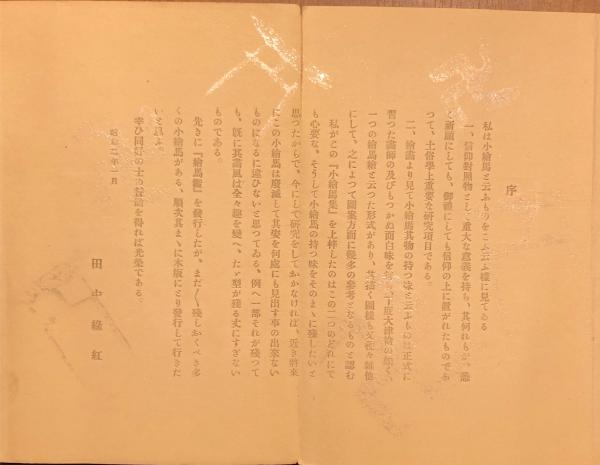 序
私は小繪馬と云ふものをこふ云ふ樣に見てゐる
一、信仰對照物として重大な意義を持ち、其何れもが、悉
く祈願にしても、御禮にしても信仰の上に捧がれたものであ
つて、土俗學上重要な研究項目である。
二、繪畵より見て小繪馬其物の持つ味と云ふもの正式に
習つた畵師の及びもつかぬ面白味を大津繪の如く、
一つの繪馬繪と云つた形式があり、其描く圖樣も種々雜他
にして、之によつて圖案方面に幾多の參考となるものと認む
私がこの『小繪馬集』を上梓したのはこの二つのどれにで
も必要な、そうして小繪馬の持つ味をそのまゝに殘したいと
思つたからで、今にして研究をしておかなければ、近き將來
にこの小繪馬は廢滅して其姿を何處にも見出す事の出來ない
ものになるに違ひないと思つてゐる、例へ一部それが殘つて
も、既に其畵風は全々趣を變へ、たゞ型が殘る丈にすぎない
ものである。
先きに『繪馬鑑』を發行したが、まだ〱殘しおくべき多
くの小繪馬がある、順次其まゝに木版にとり發行して行きた
いと思ふ。
幸ひ同好の士の賛助を得れば光榮である。
昭和二年一月
田中綠紅